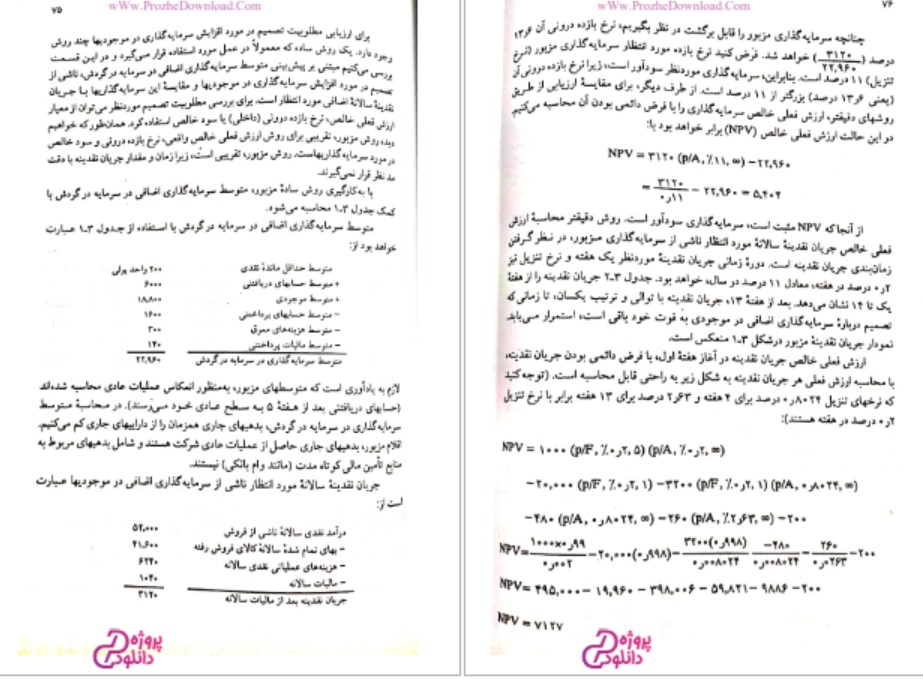 www.ProzheDownload.Com
۷۵
برای ارزیابی مطلوبیت تصمیم در مورد افزایش سرمایه‌گذاری در موجودیها چند روش
وجود دارد. یک روش ساده که معمولاً در عمل مورد استفاده قرار می‌گیرد و در این قسمت
بررسی می‌کنیم مبتنی بر پیش‌بینی متوسط سرمایه‌گذاری اضافی در سرمایه در گردش، ناشی از
تصمیم در مورد افزایش سرمایه‌گذاری در موجودیها و مقایسهٔ این سرمایه‌گذاریها با جریان
نقدینهٔ سالانهٔ اضافی مورد انتظار است. برای بررسی مطلوبیت تصمیم موردنظر می‌توان از معیار
ارزش فعلی خالص، نرخ بازده درونی (داخلی) یا سود خالص استفاده کرد. همان‌طور که خواهیم
دید، روش مزبور، تقریبی برای روش ارزش فعلی خالص واقعی، نرخ بازده درونی و سود خالص
در مورد سرمایه گذاریهاست. روش مزبور، تقریبی است، زیرا زمان و مقدار جریان نقدینه با دقت
مد نظر قرار نمی‌گیرند.
با به‌کارگیری روش سادهٔ مزبور، متوسط سرمایه‌گذاری اضافی در سرمایه در گردش با
کمک جدول ۳ـ۱ محاسبه می‌شود.
متوسط سرمایه‌گذاری اضافی در سرمایه در گردش با استفاده از جدول ۳ـ۱ عبارت
خواهد بود از:
متوسط حداقل ماندهٔ نقدی ۲۰۰ واحد پولی
+ متوسط حسابهای دریافتنی ۶۰۰۰
+ متوسط موجودی ۱۸,۸۰۰
− متوسط حسابهای پرداختنی ۱۶۰۰
− متوسط هزینه‌های معوق ۳۰۰
− متوسط مالیات پرداختنی ۱۴۰
متوسط سرمایه‌گذاری در سرمایه در گردش ۲۲,۹۶۰
لازم به یادآوری است که متوسطهای مزبور، به‌منظور انعکاس عملیات عادی محاسبه شده‌اند
(حسابهای دریافتنی بعد از هفتهٔ ۵ به سطح عادی خود می‌رسند). در محاسبهٔ متوسط
سرمایه‌گذاری در سرمایه در گردش، بدهیهای جاری همزمان را از داراییهای جاری کم می‌کنیم.
اقلام مزبور، بدهیهای جاری حاصل از عملیات عادی شرکت هستند و شامل بدهیهای مربوط به
منابع تأمین مالی کوتاه مدت (مانند وام بانکی) نیستند.
جریان نقدینهٔ سالانهٔ مورد انتظار ناشی از سرمایه‌گذاری اضافی در موجودیها عبارت
است از:
درآمد نقدی سالانهٔ ناشی از فروش ۵۲,۰۰۰
− بهای تمام شدهٔ سالانهٔ کالای فروش رفته ۴۱,۶۰۰
− هزینه‌های عملیاتی نقدی سالانه ۶۲۴۰
− مالیات سالانه ۱۰۴۰
جریان نقدینه بعد از مالیات سالانه ۳۱۲۰
پروژه
دانلود
www.ProzheDownload.Com
۷۶
چنانچه سرمایه‌گذاری مزبور را قابل برگشت در نظر بگیریم، نرخ بازده درونی آن ۱۳٫۶
درصد (۳۱۲۰/۲۲,۹۶۰) خواهد شد. فرض کنید نرخ بازده مورد انتظار سرمایه‌گذاری مزبور (نرخ
تنزیل) ۱۱ درصد است. بنابراین، سرمایه‌گذاری موردنظر سودآور است، زیرا نرخ بازده درونی آن
(یعنی ۱۳٫۶ درصد) بزرگتر از ۱۱ درصد است. از طرف دیگر، برای مقایسهٔ ارزیابی از طریق
روشهای دقیقتر، ارزش فعلی خالص سرمایه‌گذاری را با فرض دائمی بودن آن محاسبه می‌کنیم.
در این حالت ارزش فعلی خالص (NPV) برابر خواهد بود با:
NPV = ۳۱۲۰ (p/A, ٪۱۱, ∞) − ۲۲,۹۶۰
= ۳۱۲۰/۰٫۱۱ − ۲۲,۹۶۰ = ۵,۴۰۴
از آنجا که NPV مثبت است، سرمایه‌گذاری سودآور است. روش دقیقتر محاسبهٔ ارزش
فعلی خالص جریان نقدینهٔ سالانهٔ مورد انتظار ناشی از سرمایه‌گذاری مزبور، در نظر گرفتن
زمان‌بندی جریان نقدینه است. دورهٔ زمانی جریان نقدینهٔ موردنظر یک هفته و نرخ تنزیل نیز
۰٫۲ درصد در هفته، معادل ۱۱ درصد در سال، خواهد بود. جدول ۳ـ۲ جریان نقدینه را از هفتهٔ
یک تا ۱۴ نشان می‌دهد. بعد از هفتهٔ ۱۳، جریان نقدینه با توالی و ترتیب یکسان، تا زمانی که
تصمیم دربارهٔ سرمایه‌گذاری اضافی در موجودی به قوت خود باقی است، استمرار می‌یابد.
نمودار جریان نقدینهٔ مزبور درشکل ۳ـ۱ منعکس است.
ارزش فعلی خالص جریان نقدینه در آغاز هفتهٔ اول، با فرض دائمی بودن جریان نقدینه،
با محاسبه ارزش فعلی هر جریان نقدینه به شکل زیر به راحتی قابل محاسبه است. (توجه کنید
که نرخهای تنزیل ۰٫۸۰۲۴ درصد برای ۴ هفته و ۲٫۶۳ درصد برای ۱۳ هفته برابر با نرخ تنزیل
۰٫۲ درصد در هفته هستند):
NPV = ۱۰۰۰ (p/F, ٪۰٫۲, ۵) (p/A, ٪۰٫۲, ∞)
−۲۰,۰۰۰ (p/F, ٪۰٫۲, ۱) −۳۲۰۰ (p/F, ٪۰٫۲, ۱) (p/A, ۰٫۸۰۲۴, ∞)
−۴۸۰ (p/A, ۰٫۸۰۲۴, ∞) −۲۶۰ (p/A, ٪۲٫۶۳, ∞) −۲۰۰
NPV= ۱۰۰۰×۰٫۹۹/۰٫۰۰۲ −۲۰,۰۰۰(۰٫۹۹۸)− ۳۲۰۰(۰٫۹۹۸)/۰٫۰۰۸۰۲۴ −۴۸۰/۰٫۰۰۸۰۲۴ − ۲۶۰/۰٫۰۲۶۳ −۲۰۰
NPV= ۴۹۵,۰۰۰− ۱۹,۹۶۰ − ۳۹۸,۰۰۶ − ۵۹,۸۲۱− ۹۸۸۶ −۲۰۰
NPV = ۷۱۲۷
پروژه
دانلود